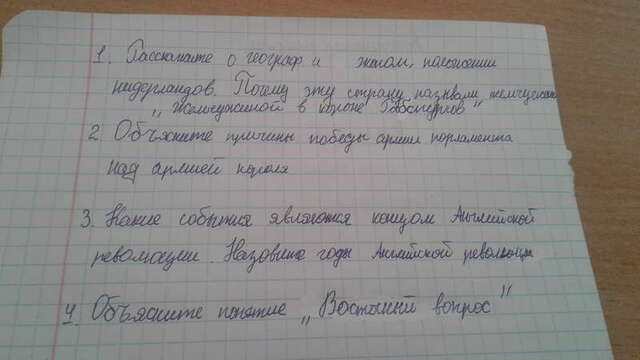 1. Расскажите о географ и эконом, положении
нидерландов. Почему эту страну назвали жемчужин
„ Жемчужиной в короне Габсбургов"
2. Объясните причины победы армии парламента
над армией короля
3. Какие события являются концом Английской
революции. Назовите годы Английской революции
4. Объясните понятие „Восточный вопрос"